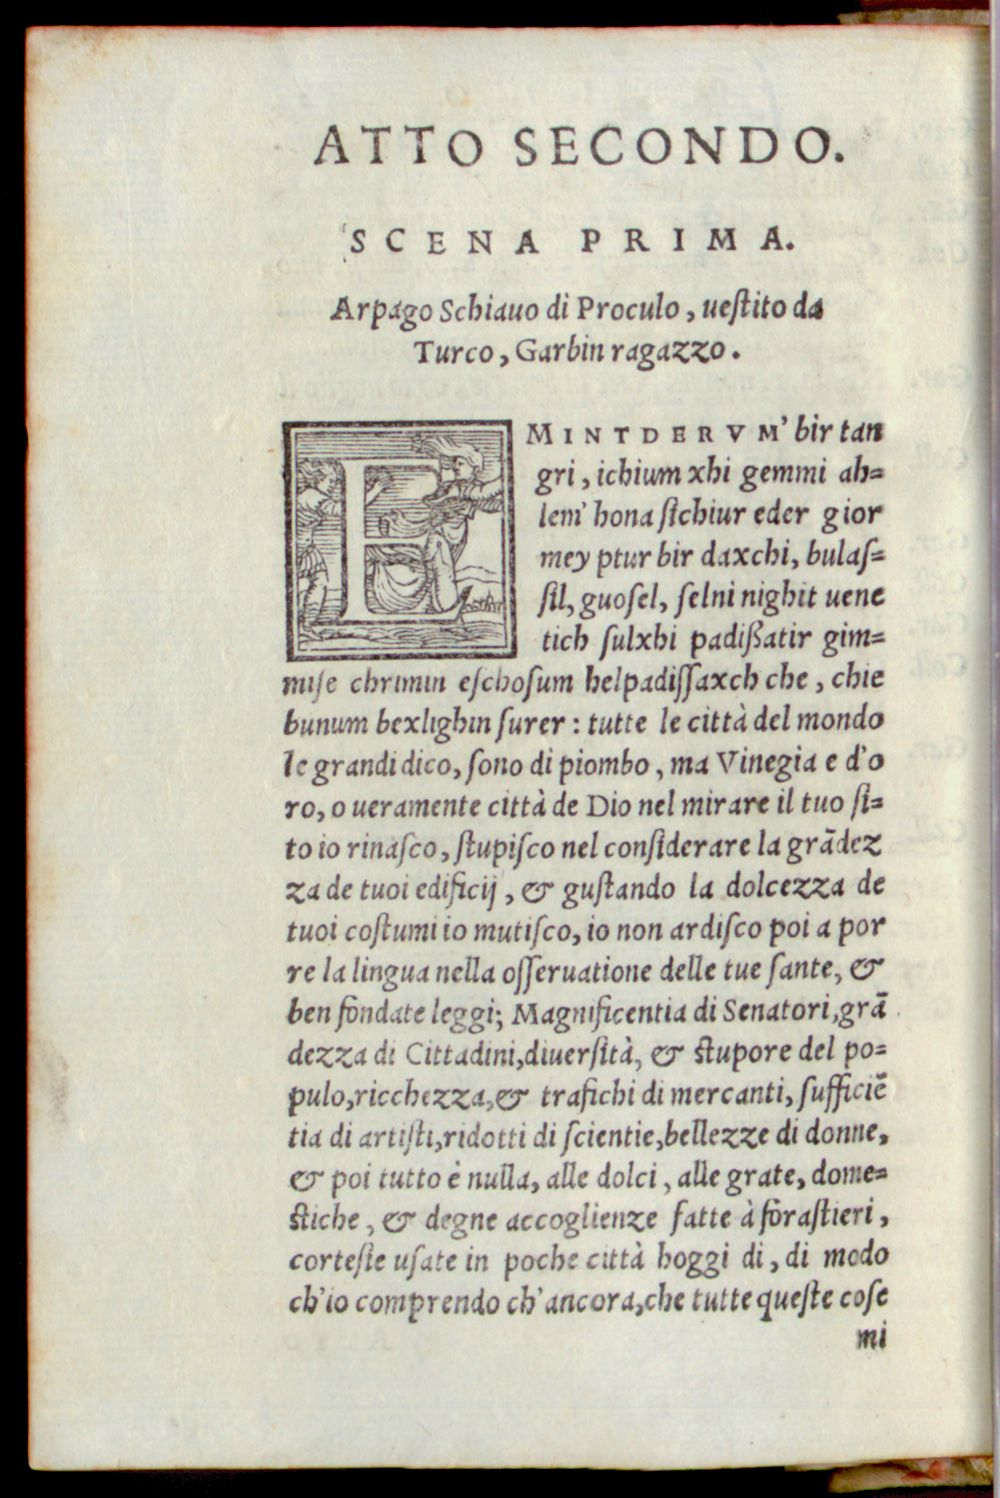 ATTO SECONDO.
SCENA PRIMA.
Arpago Schiauo di Proculo, ueſtito da
Turco, Garbin ragazzo.
EMINTDERVM' bir tan
gri, ichium xhi gemmi ah=
lem' hona ſichiur eder gior
mey ptur bir daxchi, bulaſ=
ſil, guoſel, ſelni nighit uene
tich ſulxhi padißatir gim=
miſe chrimin eſchoſum helpadiſſaxch che, chie
bunum bexlighin ſurer : tutte le città del mondo
le grandi dico, ſono di piombo, ma Vinegia e d'o
ro, o ueramente città de Dio nel mirare il tuo ſi=
to io rinaſco, ſtupiſco nel conſiderare la grādez
za de tuoi edificij, & guſtando la dolcezza de
tuoi coſtumi io mutiſco, io non ardiſco poi a por
re la lingua nella oſſeruatione delle tue ſante, &
ben fondate leggi; Magnificentia di Senatori, grā
dezza di Cittadini, diuerſità, & ſtupore del po=
pulo, ricchezza, & trafichi di mercanti, ſufficiē
tia di artiſti, ridotti di ſcientie, bellezze di donne,
& poi tutto è nulla, alle dolci, alle grate, dome=
ſtiche, & degne accoglienze fatte à foraſtieri,
corteſie uſate in poche città hoggi di, di modo
ch'io comprendo ch'ancora, che tutte queſte coſe
mi